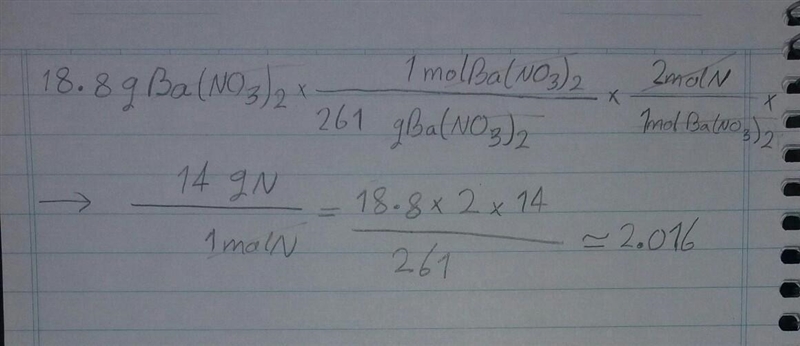 18.8 g Ba(NO3)2 × 1 mol Ba(NO3)2 / 261 g Ba(NO3)2 × 2 mol N / 1 mol Ba(NO3)2 ×
→ 14 g N / 1 mol N = 18.8 × 2 × 14 / 261 ≃ 2.016